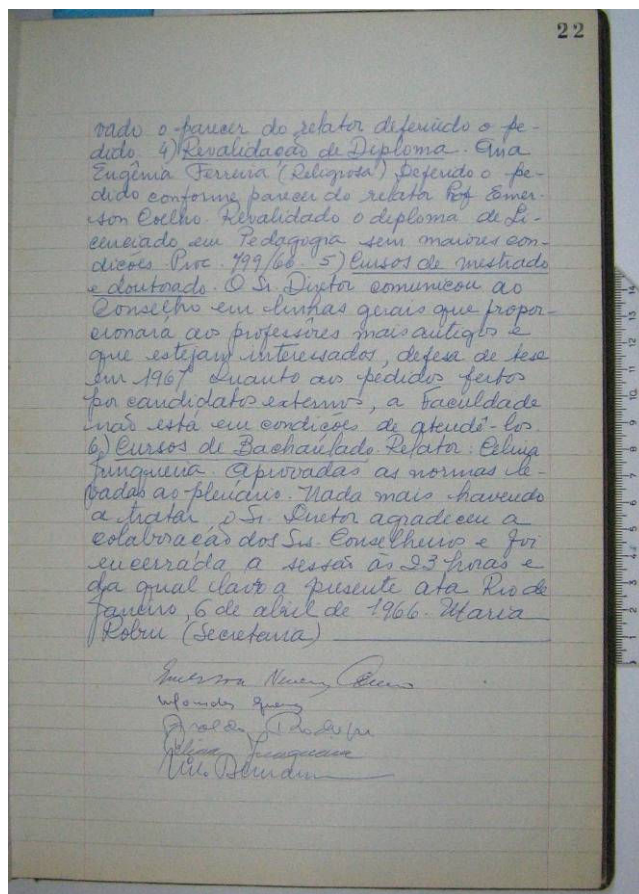 22
vado o parecer do relator deferindo o pe-
dido. 4) Revalidação de Diploma. Ana
Eugênia Ferreira (Religiosa) Deferido o pe-
dido conforme parecer do relator Prof Emer-
son Coelho. Revalidado o diploma de Li-
cenciado em Pedagogia sem maiores con-
dições. Proc. 799/66. 5) Cursos de mestrado
e doutorado. O Sr. Diretor comunicou ao
Conselho em linhas gerais que propor-
cionará aos professôres mais antigos e
que estejam interessados, defesa de tese
em 1967. Quanto aos pedidos feitos
por candidatos externos, a Faculdade
não está em condições de atendê-los.
6) Cursos de Bacharelado. Relator: Celina
Junqueira. Aprovadas as normas le-
vadas ao plenário. Nada mais havendo
a tratar, o Sr. Diretor agradeceu a
colaboração dos Srs. Conselheiros e foi
encerrada a sessão às 23 horas e
da qual lavro a presente ata Rio de
Janeiro, 6 de abril de 1966. Maria
(Secretaria)
Emerson
Aroldo Rodrigues
Celina Junqueira